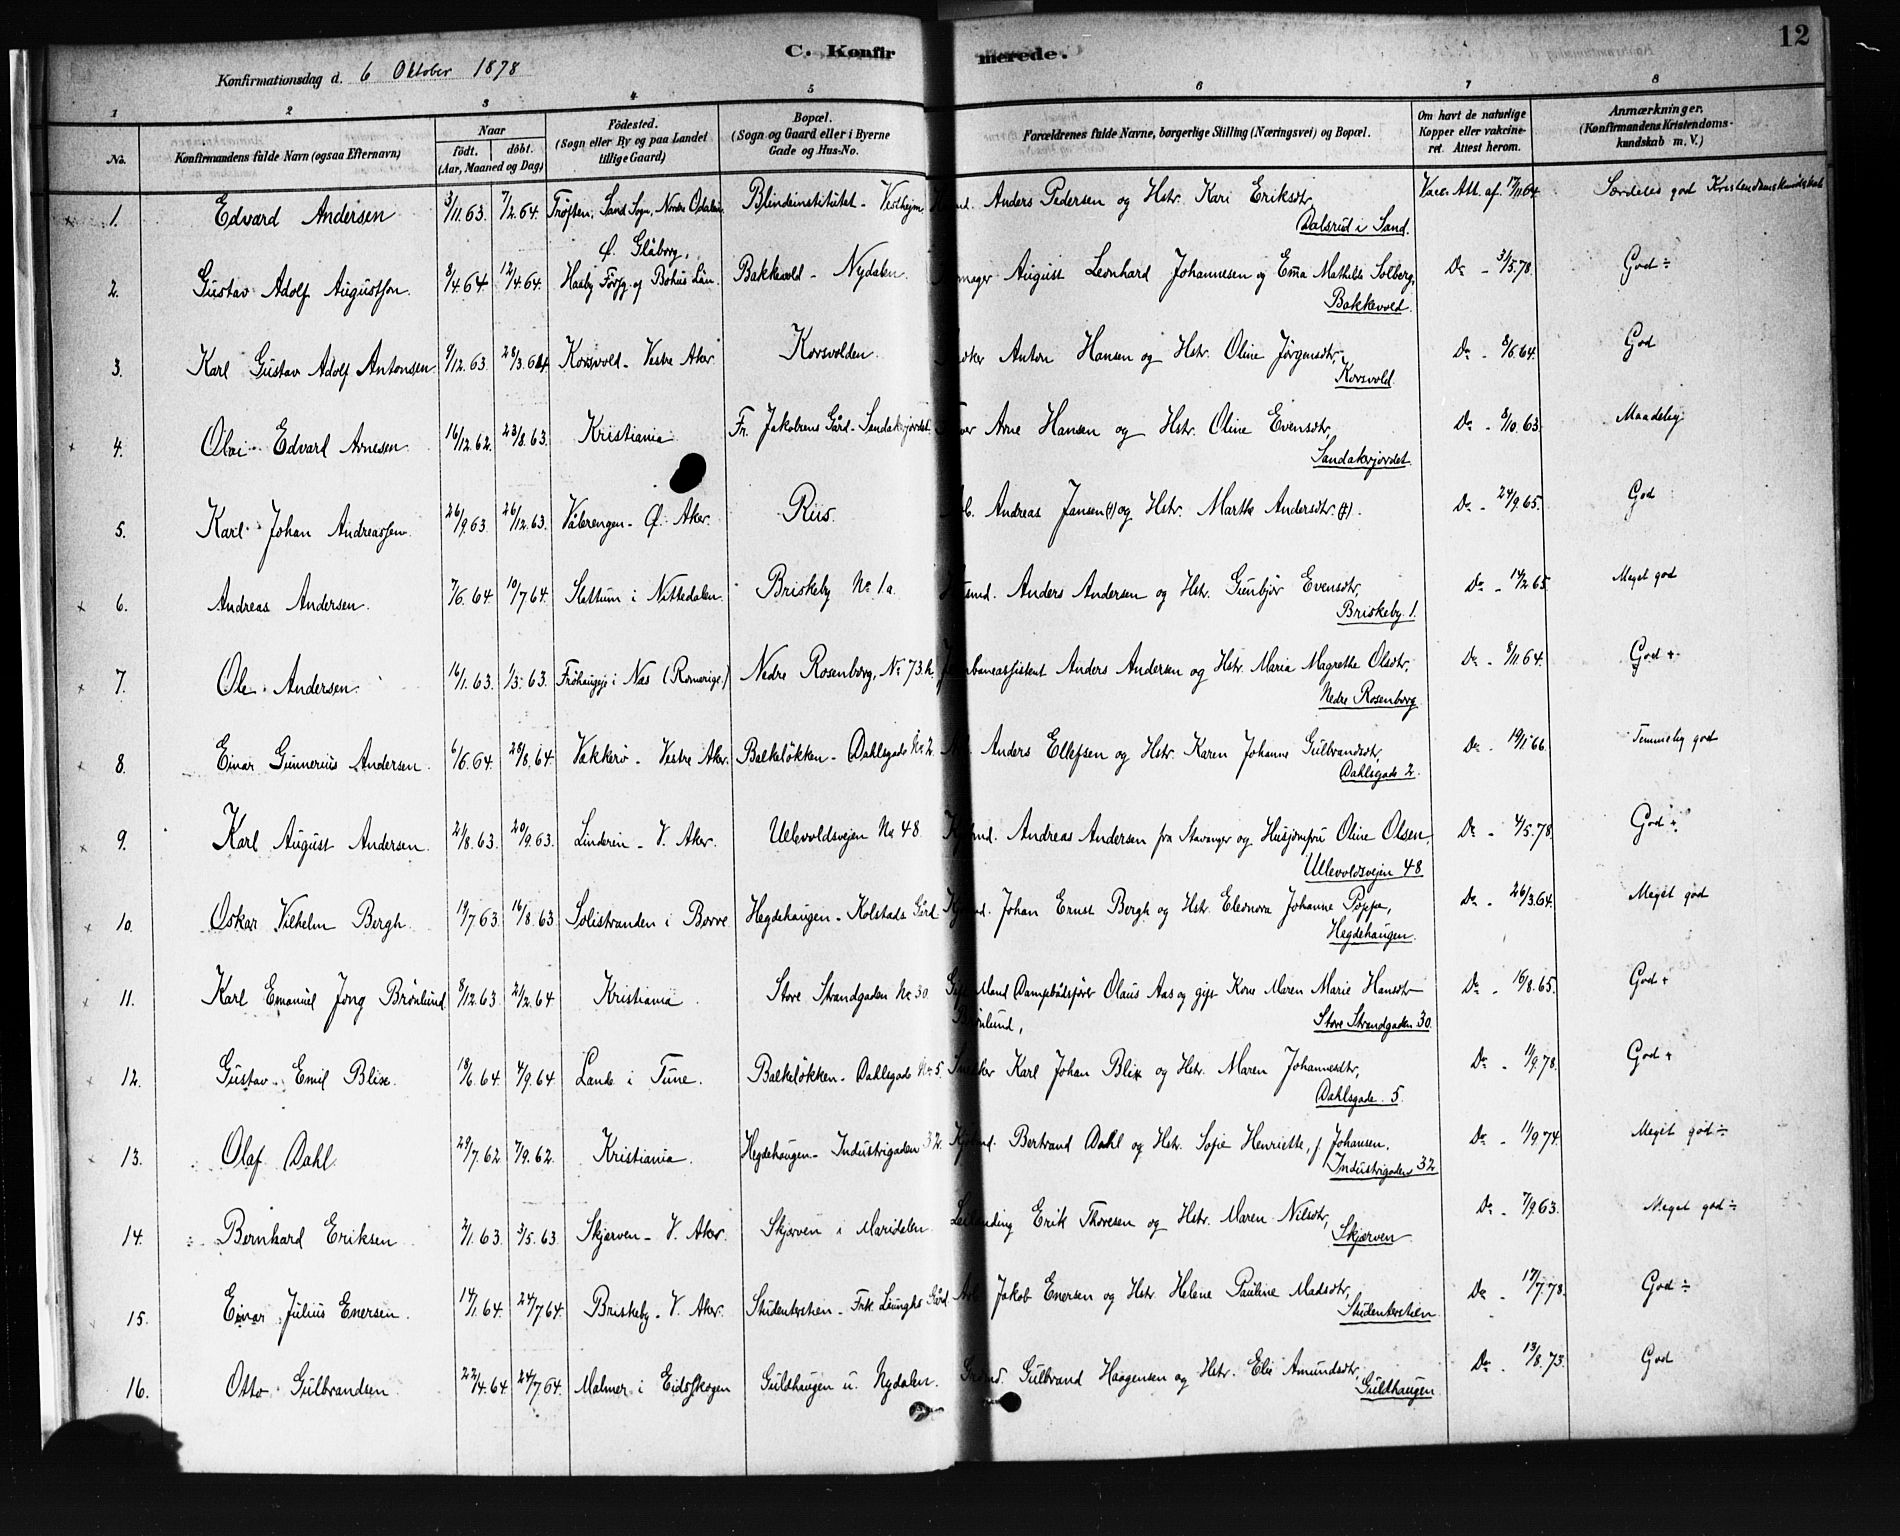 12
C. Konfir merede.
Konfirmationsdag d. 6 Oktober 1878
1 2 3 4 5 6 7 8
No. Konfirmandens fulde Navn (ogsaa Efternavn) Naar födt. döbt. (Aar, Maaned og Dag) Födested. (Sogn eller By og paa Landet tillige Gaard) Bopæl. (Sogn og Gaard eller i Byerne Gade og Hus-No. Forældrenes fulde Navne, borgerlige Stilling (Næringsvei) og Bopæl. Om havt de naturlige Kopper eller vakcineret. Attest herom. Anmærkninger. (Konfirmandens Kristendomskundskab m. V.)
1. Edvard Andersen 3/11 63. 7/2. 64. Trøften, Sand Sogn, Nordre Odalen Blindeinstitutet - Vestheim Anders Pedersen og Hstr. Kari Eriksdtr, Vacc. Att. af 17/11 64. Særdeles god Kristendomskundskab
Dalsrud i Sand.
2. Gustav Adolf Augustson 8/4. 64. 12/4. 64. Ø. Glåborg, Haaby Forsg. af Bohus Län. Bakkevold - Nydalen. August Leonhard Johannesen og Ema Mathilde Solberg, Do - 3/5. 78. God ÷
Bakkevold.
3. Karl Gustav Adolf Antonsen 9/12. 63. 28/3. 64 Korsvold - Vestre Aker Korsvolden. Anton Hansen og Hstr. Oline Jørgensdtr, Do - 8/6. 64. God
Korsvold.
4. Olai Edvard Arnesen 16/12. 62. 23/8. 63. Kristiania Fr. Jakobsens Gård - Sandakerjordet. Arne Hansen og Hstr. Oline Evensdtr, Do - 8/10. 63. Maadelig
Sandakerjordet.
5. Karl Johan Andreassen 26/9. 63. 26/12. 63. Vålerengen - Ø. Aker. Riis. Andreas Jansen (†) og Hstr. Marthe Andersdtr. (†). Do - 24/9. 65. God
6. Andreas Andersen. 7/6. 64. 10/7. 64. Slattum i Nittedalen. Briskeby No 1a. Anders Andersen og Hstr. Gunbjør Evensdtr, Do - 14/2. 65. Meget god
Briskeby 1.
7. Ole Andersen. 16/1. 63. 1/3. 63. Frøhaugeje i Nas (Romerige.) Nedre Rosenborg, No 73. Jernbaneassistent Anders Andersen og Hstr. Maria Magrethe Olsdtr, Do - 8/11. 64. God +
Nedre Rosenborg
8. Einar Gunnerius Andersen. 6/6. 64. 28/8. 64. Vækkerø - Vestre Aker. Balkeløkken - Dahlsgade No 2. Anders Ellefsen og Hstr. Karen Johanne Gulbrandsdtr, Do - 19/1. 66. Temmelig god
Dahlsgade 2.
9. Karl August Andersen. 21/8. 63. 20/9. 63. Linderen - V. Aker. Ullevoldsvejen No 48. Andreas Andersen fra Stavanger og Husjomfru Oline Olsen, Do - 4/5. 78. God +
Ullevoldsvejen 48
10. Oskar Vilhelm Bergh. 19/7. 63. 16/8. 63. Solistranden i Borre. Hegdehaugen - Kolstads Gård Johan Ernst Bergh og Hstr. Eleonora Johanne Poppe, Do - 26/3. 64. Meget god
Hegdehaugen.
11. Karl Emanuel Jong Brønlund 8/12. 63. 21/2. 64 Kristiania Store Strandgaden No 30. Gift Mand Dampbådsfører Olaus Aas og gift Kone Maren Marie Hansdtr Do - 16/8. 65. God +
Brønlund, Store Strandgaden 30.
12. Gustav Emil Blix. 18/6. 64. 4/9. 64. Lande i Tune. Balkeløkken - Dahlsgade No. 5. Snedker Karl Johan Blix og Hstr. Maren Johannesdtr, Do - 11/9. 78. God +
Dahlsgade. 5.
13. Olaf Dahl. 29/7. 62. 7/9. 62. Kristiania. Hegdehaugen - Industrigaden 32. Bertrand Dahl og Hstr. Sofie Henriette, f Johansen. Do - 11/9. 74. Meget god ÷
Industrigaden 32
14. Bernhard Eriksen 2/1. 63. 3/5. 63. Skjærven - V. Aker. Skjærven i Maridalen. Leilending Erik Thoresen og Hstr. Maren Nilsdtr, Do - 7/9. 63. Meget god ÷
Skjærven
15. Einar Julius Enersen. 14/1. 64. 24/7. 64. Briskeby - V. Aker. Studenterstien - Frk. Ljunghs Gård Arb. Jakob Enersen og Hstr. Helene Pauline Madsdtr, Do - 17/7. 78. God ÷
Studenterstien
16. Otto Gulbrandsen. 22/4. 64. 24/7. 64. Malmer i Eidsskogen Guldhaugen u. Nydalen. Gulbrand Haagensen og Hstr. Eli Amundsdtr, Do - 13/8. 73. God
Guldhaugen.